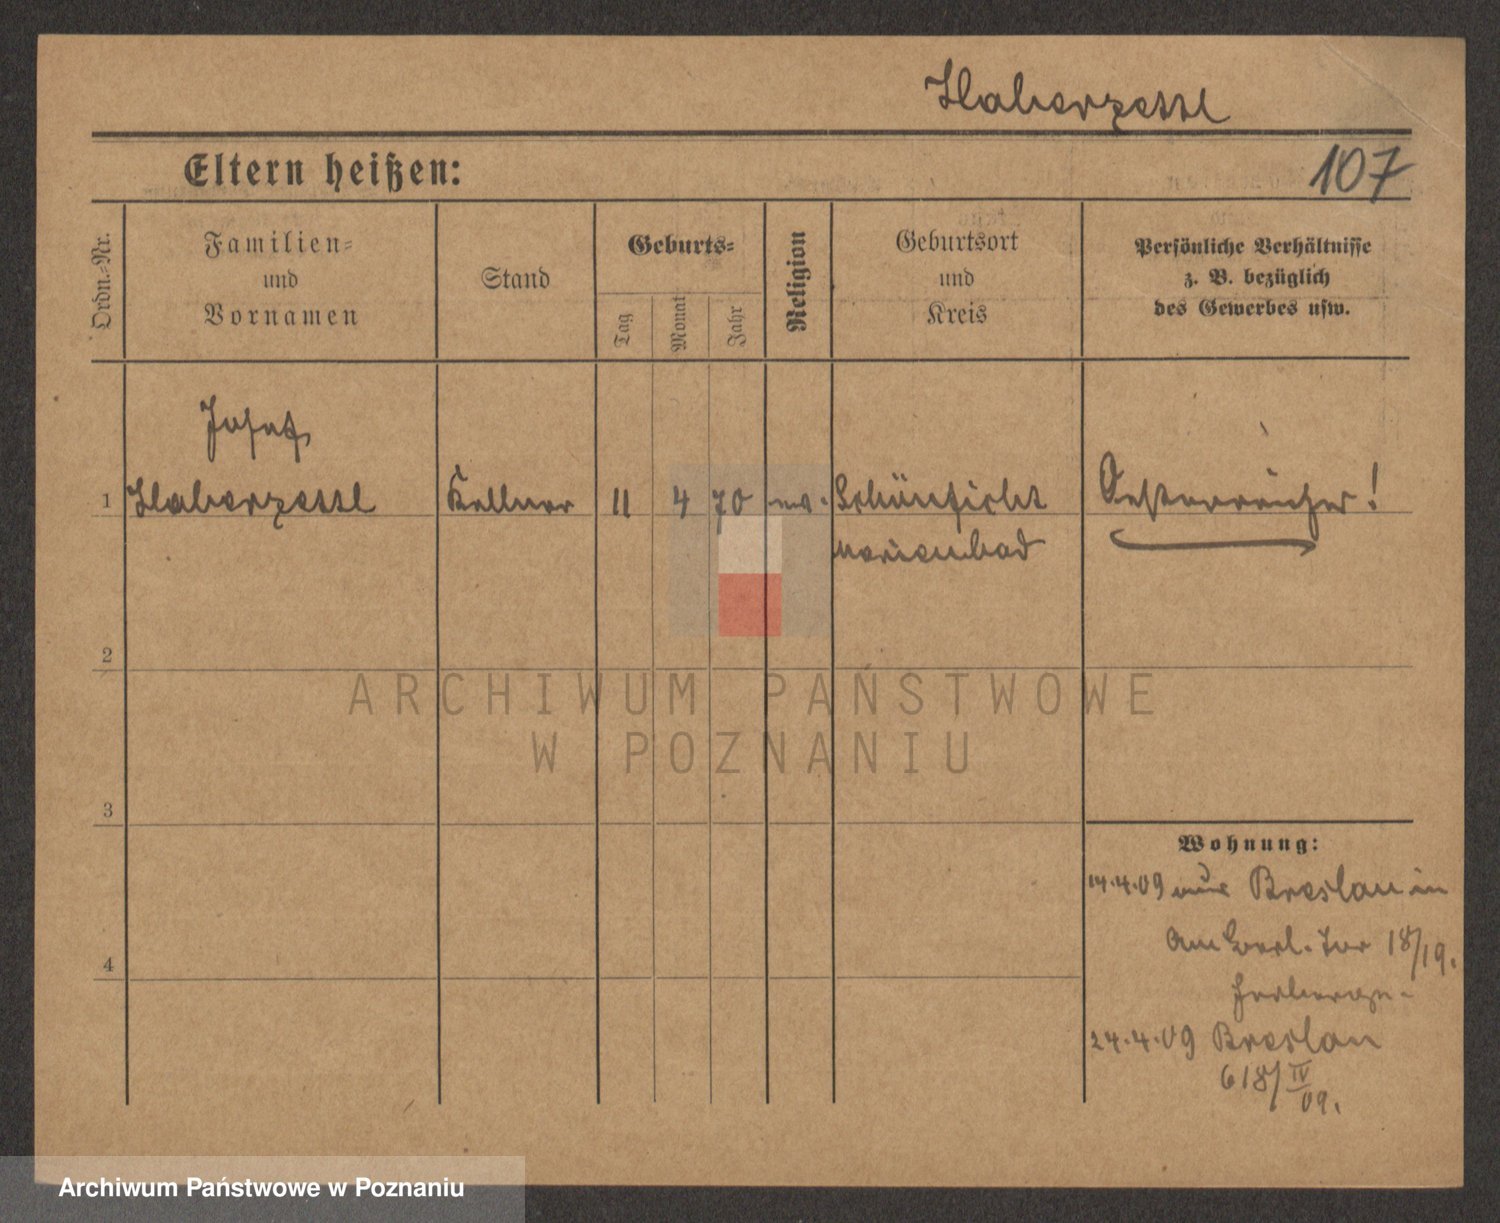 Haberzettl
Eltern heißen:
107
Ordn.-Nr.
Familien-
und
Vornamen
Stand
Geburts-
Tag
Monat
Jahr
Religion
Geburtsort
und
Kreis
Persönliche Verhältnisse
z. B. bezüglich
des Gewerbes usw.
Josef
1 Haberzettl Kellner 11 4 70 Schönficht Oesterreicher!
Marienbad
2
ARCHIWUM PAŃSTWOWE
W POZNANIU
3
Wohnung:
14.4.09 aus Breslau in
Am Berl. Tor 18/19.
Herberge.
4
24.4.09 Breslau
618/IV
09.
Archiwum Państwowe w Poznaniu